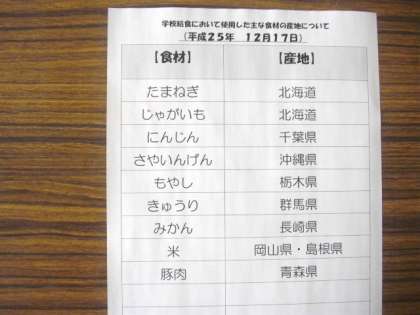 学校給食において使用した主な食材の産地について
(平成25年　12月17日)
【食材】　【産地】
たまねぎ　北海道
じゃがいも　北海道
にんじん　千葉県
さやいんげん　沖縄県
もやし　栃木県
きゅうり　群馬県
みかん　長崎県
米　岡山県・島根県
豚肉　青森県